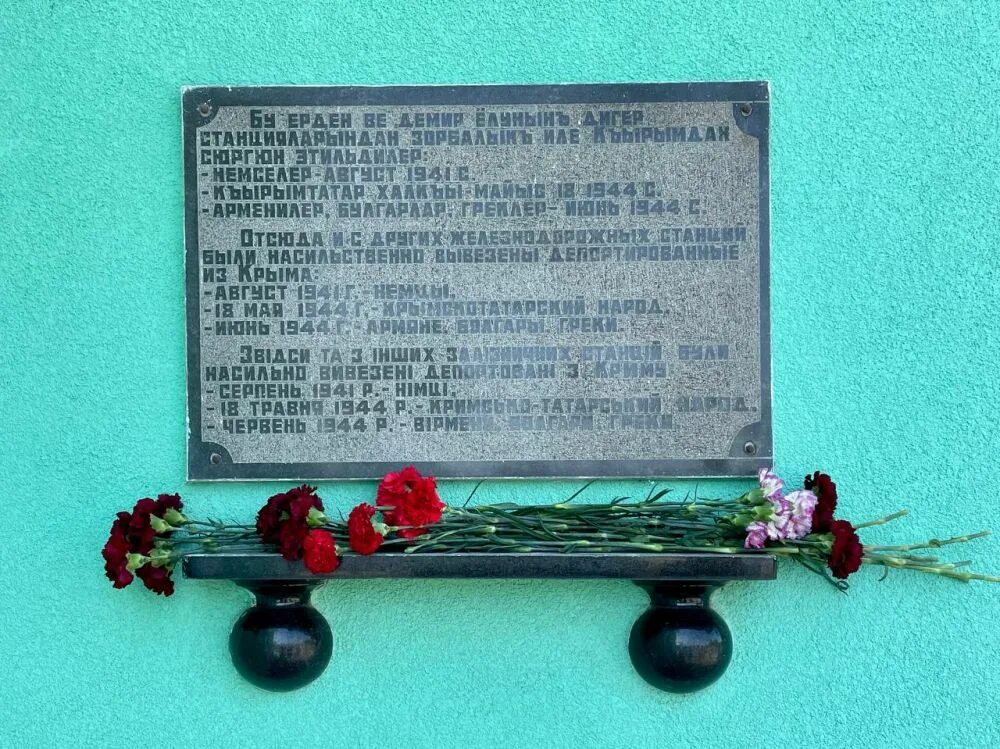 Бу ерден ве демир ёлунынъ дигер
станцияларындан зорбалыкъ иле Къырымдан
сюргюн этильдилер:
-немселер-август 1941 с.
-къырымтатар халкъы-майыс 18 1944 с.
-арменилер, булгарлар, греклер-июнь 1944 с.
Отсюда и с других железнодорожных станций
были насильственно вывезены депортированные
из Крыма:
-август 1941 г.-немцы,
-18 мая 1944 г.-крымскотатарский народ,
-июнь 1944 г.-армяне, болгары, греки.
Звідси та з інших залізничних станцій були
насильно вивезені депортовані з Криму
-серпень 1941 р.-німці,
-18 травня 1944 р.-кримсько-татарський народ,
-червень 1944 р.-вірмени, болгари, греки.